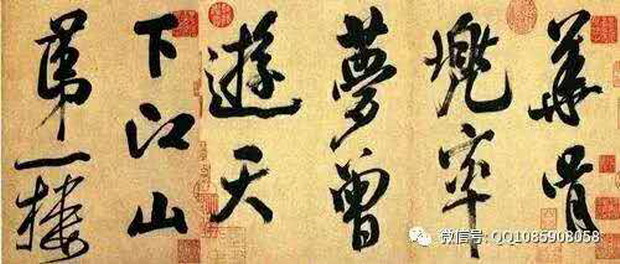 華胥
兜率
夢曾
遊天
下江山
第一樓
微信号: QQ1085908058